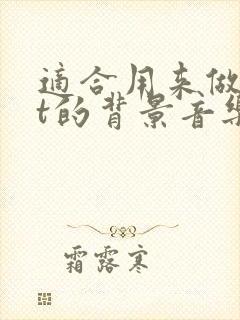 適合用來做
t的背景音樂
霜露寒